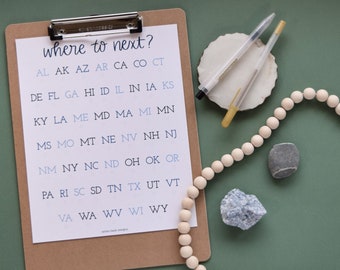 where to next?
AL AK AZ AR CA CO CT
DE FL GA HI ID IL IN IA KS
KY LA ME MD MA MI MN
MS MO MT NE NV NH NJ
NM NY NC ND OH OK OR
PA RI SC SD TN TX UT VT
VA WA WV WI WY